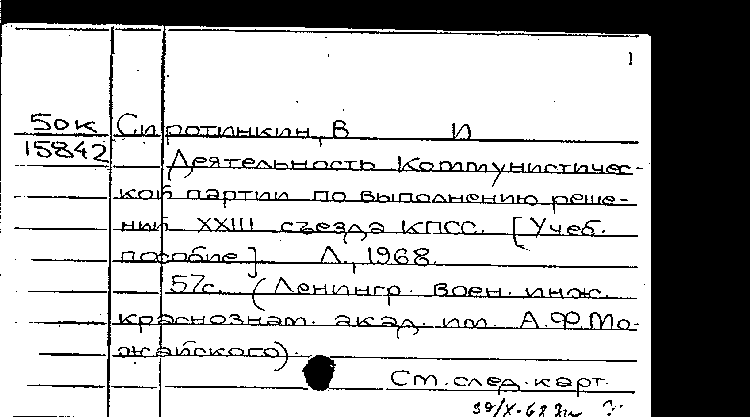 1
50к Сиротинкин, В И
15842 Деятельность Коммунистичес-
кой партии по выполнению реше-
ний XXIII съезда КПСС. [Учеб.
пособие]. Л., 1968.
57с. (Ленингр. воен. инж.
краснознам. акад. им. А.Ф.Мо-
жайского).
См. след. карт.